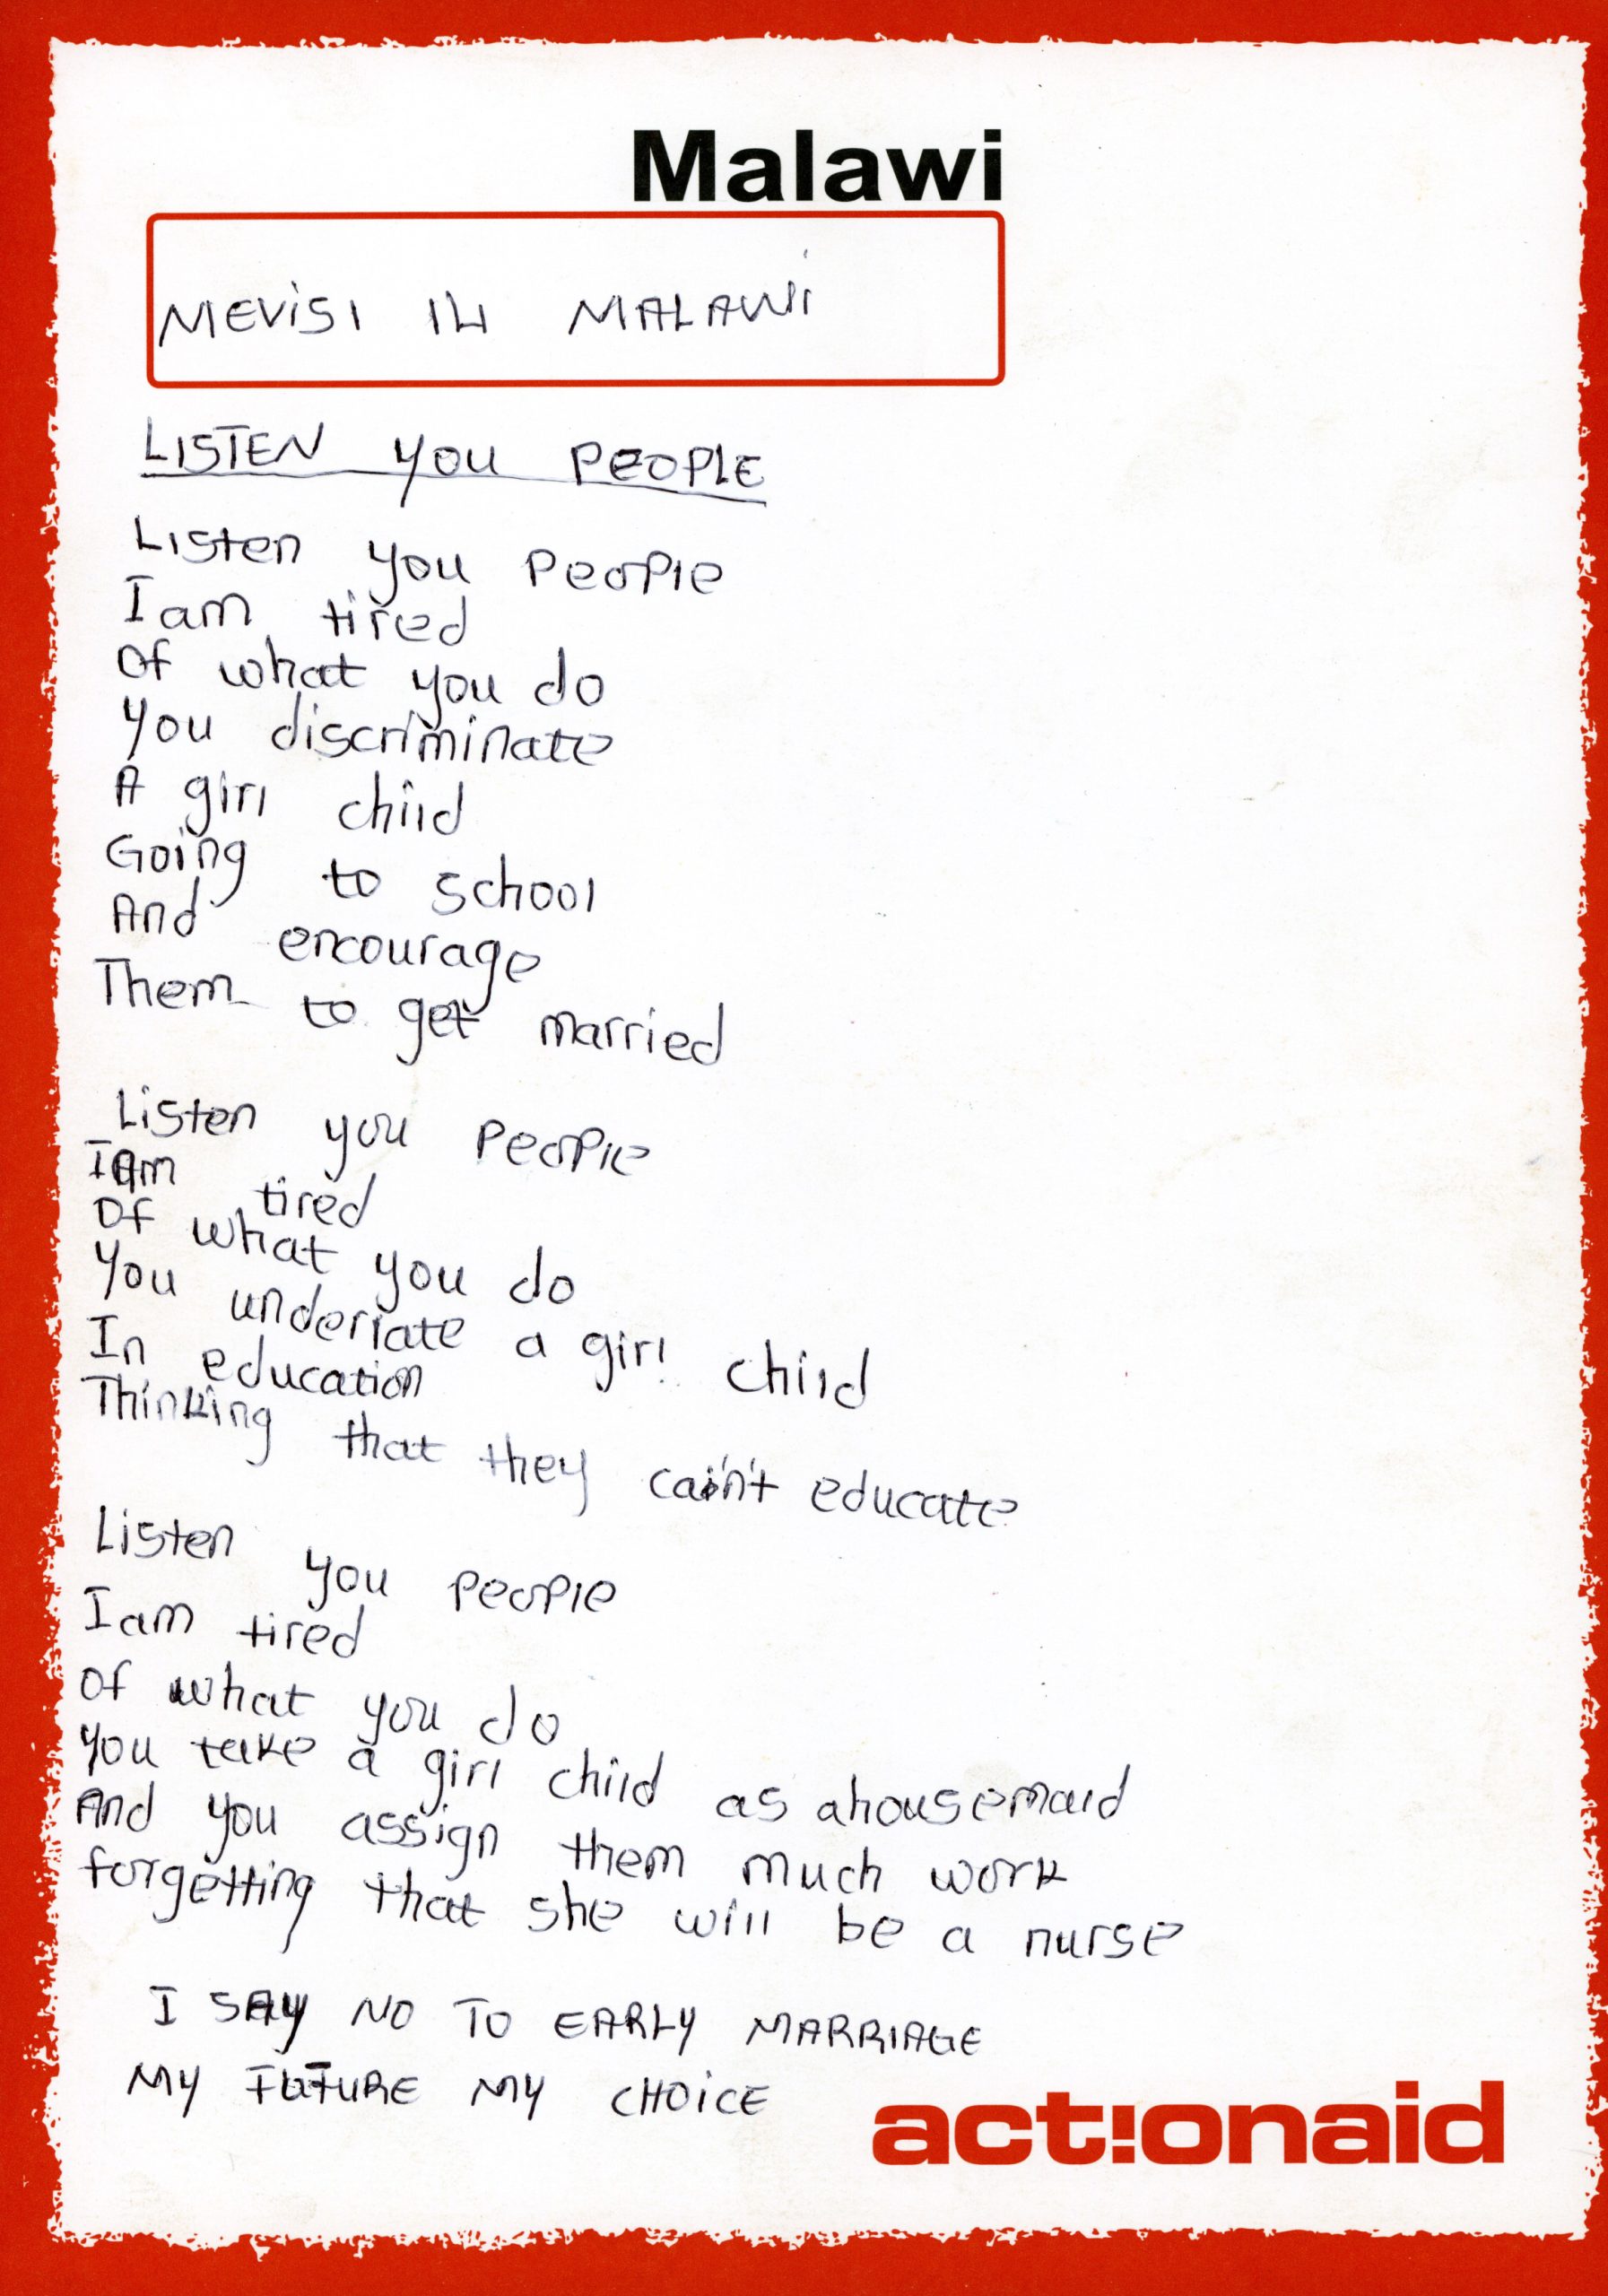 Malawi
MEVISI 14 MALAWI
LISTEN YOU PEOPLE
Listen you people
I am tired
Of what you do
You discriminate
A girl child
Going to school
And encourage
Them to get married
Listen you people
I am tired
Of what you do
You underrate a girl child
In education
Thinking that they cain't educate
Listen you people
I am tired
Of what you do
You take a girl child as a housemaid
And you assign them much work
forgetting that she will be a nurse
I SAY NO TO EARLY MARRIAGE
MY FUTURE MY CHOICE
act!onaid